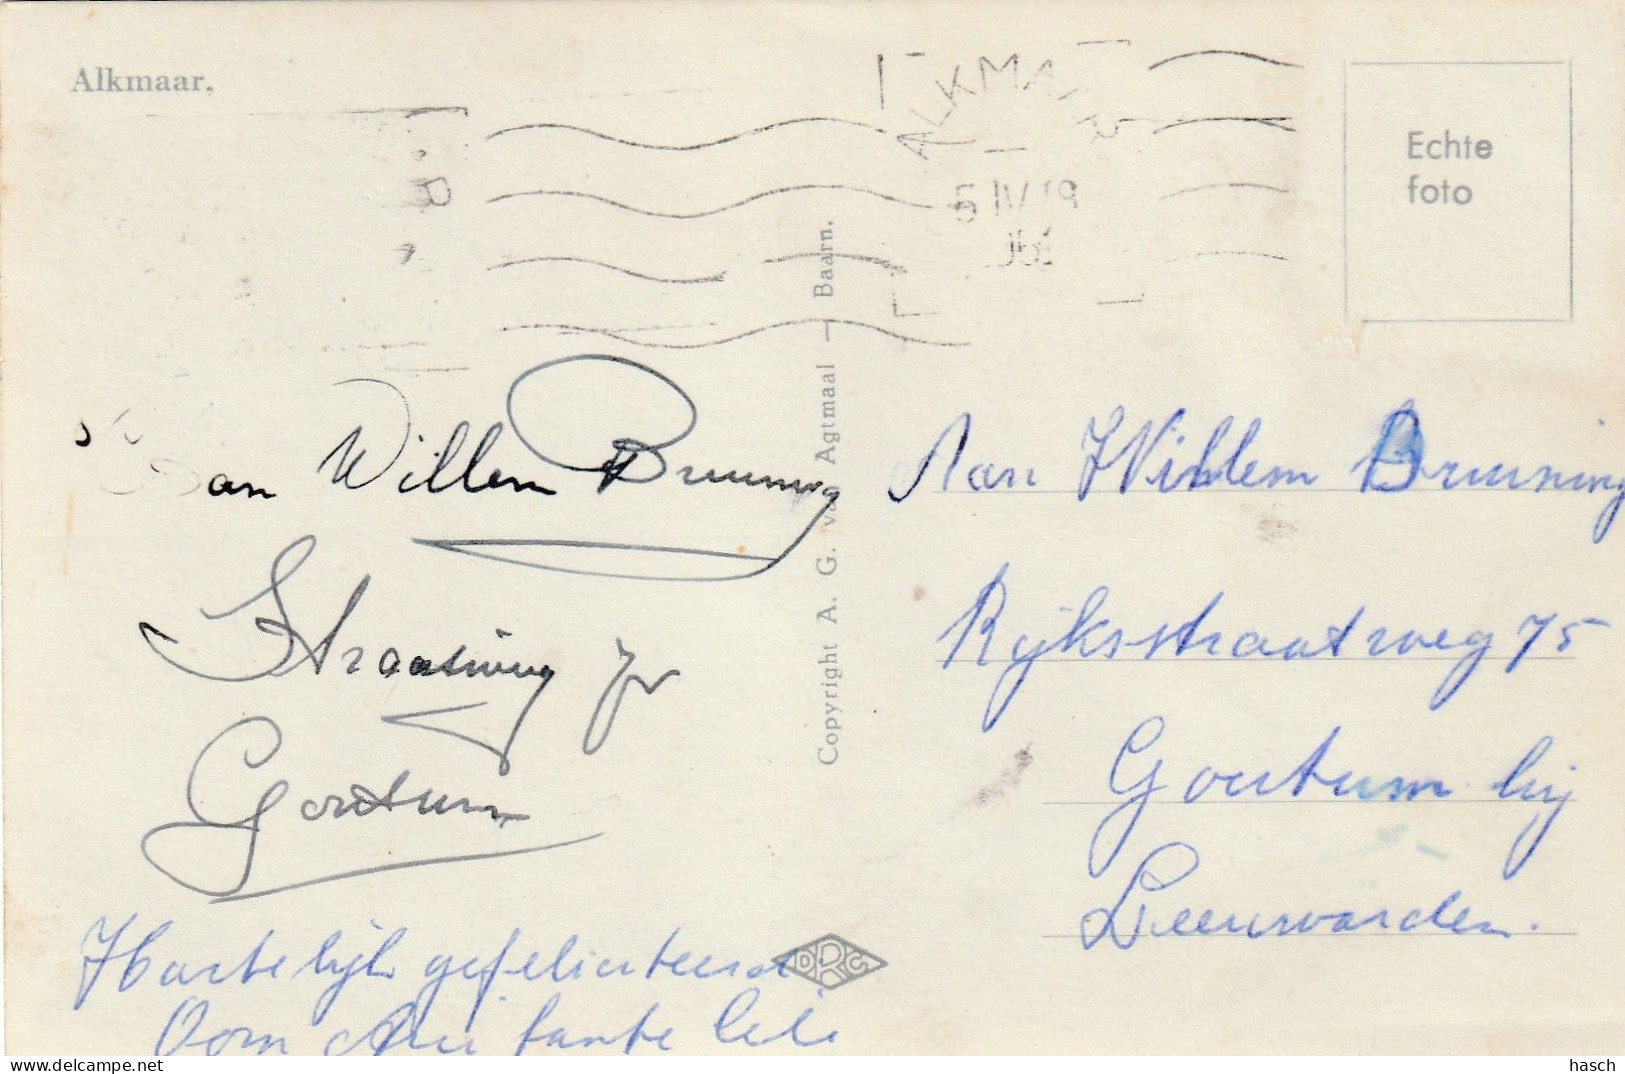 Alkmaar,
ALKMAAR
Echte
foto
Copyright A. G. van Agtmaal — Baarn.
Aan Willem Bruning
Straatweg 75
Goutum
Hartelijk gefeliciteerd
Oom
tante
Aan Willem Bruining
Rijksstraatweg 75
Goutum bij
Leeuwarden.
DRGS
delcampe.net
hasch